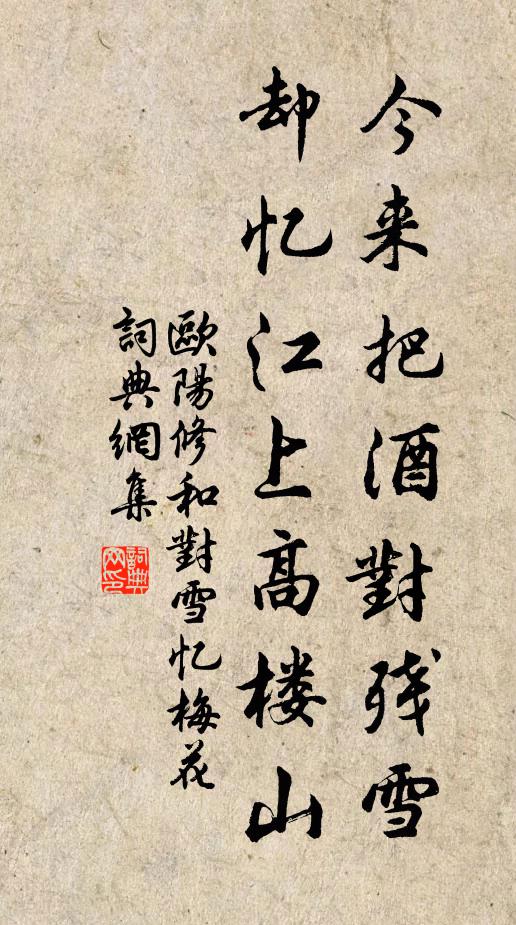 今来把酒對残雪
却忆江上高楼山
歐陽修和對雪忆梅花
詞典網集
詞典網印